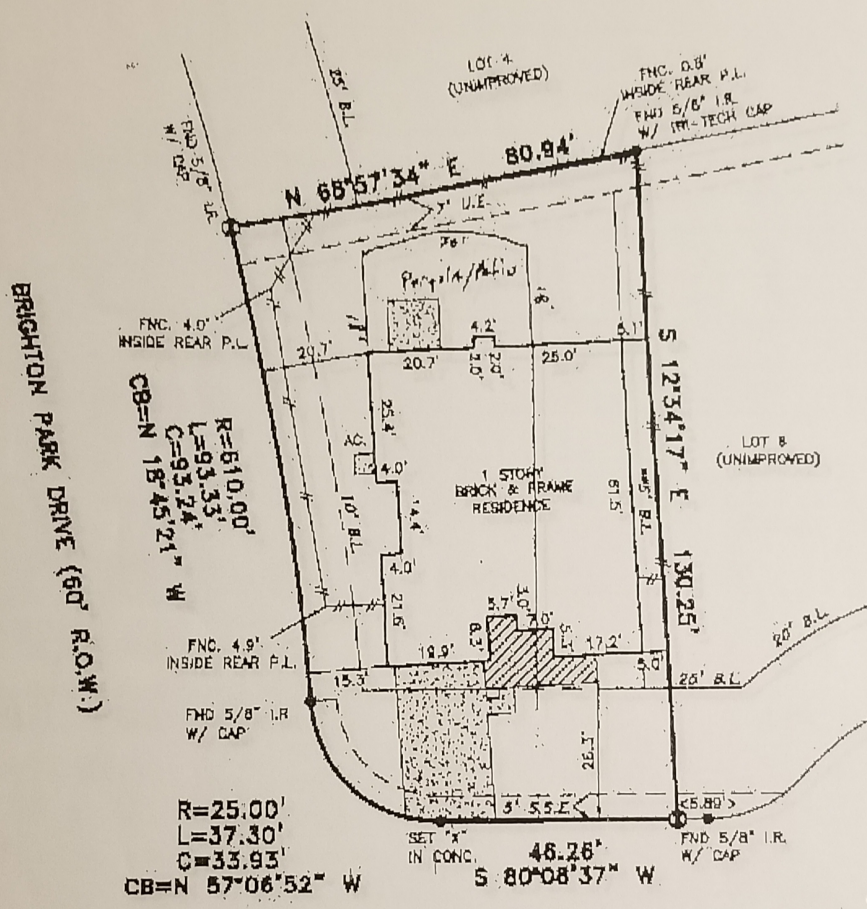 LOT 4
(UNIMPROVED)
FNC. 0.8'
INSIDE REAR P.L.
FND 5/8" I.R.
W/ TRI-TECH CAP
25' B.L.
FND 5/8" I.R.
W/ CAP
N 68°57'34" E 80.94'
7' U.E.
Pergola/Patio
18'
FNC. 4.0'
INSIDE REAR P.L.
20.7'
20.7'
4.2'
2.0'
2.0'
25.0'
5.1'
S 12°34'17" E 130.25'
LOT 8
(UNIMPROVED)
BRIGHTON PARK DRIVE (60' R.O.W.)
R=610.00'
L=93.33'
C=93.24'
CB=N 18°45'21" W
25.4'
AC.
4.0'
14.4'
4.0'
21.6'
10' B.L.
1 STORY
BRICK & FRAME
RESIDENCE
61.5'
5' B.L.
FNC. 4.9'
INSIDE REAR P.L.
15.3'
19.9'
6.3'
3.0'
7.0'
17.2'
5.0'
20' B.L.
25' B.L.
FND 5/8" I.R
W/ CAP
5' S.S.E.
<5.89'>
R=25.00'
L=37.30'
C=33.93'
CB=N 57°06'52" W
SET "X"
IN CONC.
46.26'
S 80°08'37" W
FND 5/8" I.R.
W/ CAP